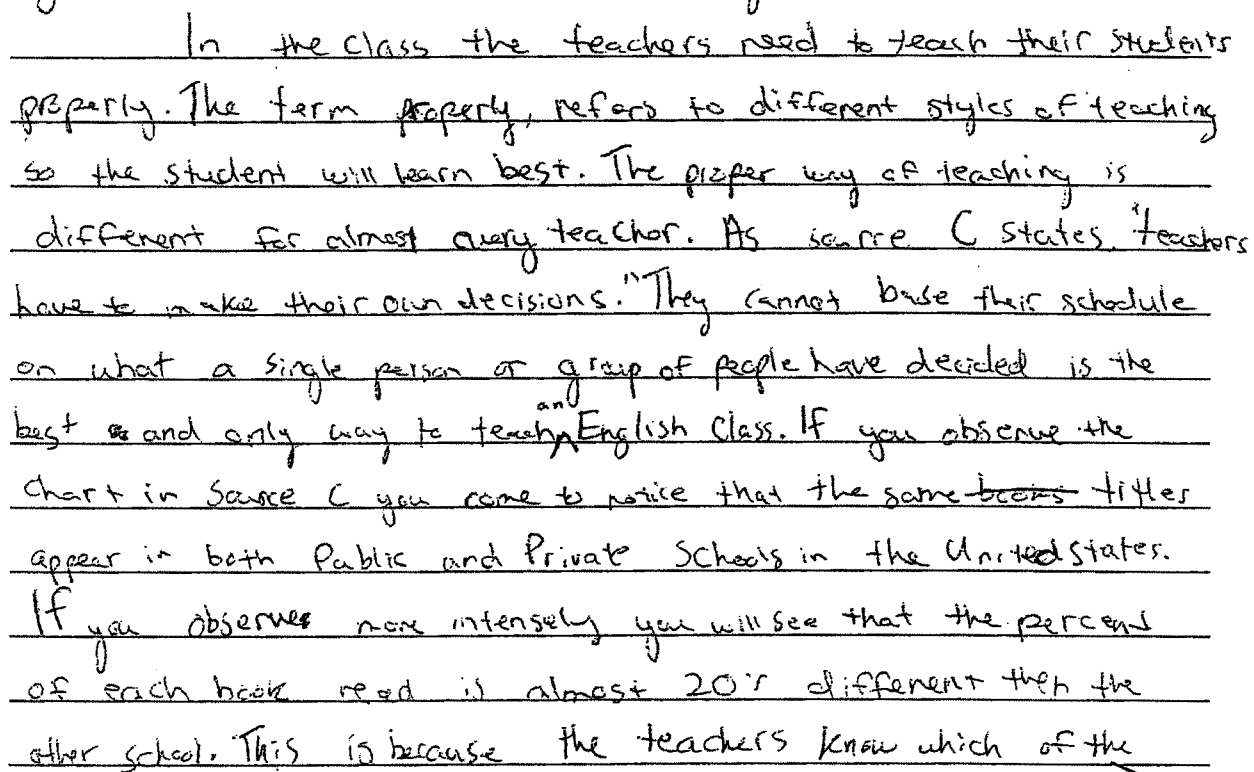 In the class the teachers need to teach their students
properly. The term properly, refers to different styles of teaching
so the student will learn best. The proper way of teaching is
different for almost every teacher. As source C states, "teachers
have to make their own decisions." They cannot base their schedule
on what a single person or group of people have decided is the
best and only way to teach an English Class. If you observe the
Chart in Source C you come to notice that the same books titles
appear in both Public and Private Schools in the United States.
If you observe more intensely you will see that the percent
of each book read is almost 20% different then the
other school. This is because the teachers know which of the